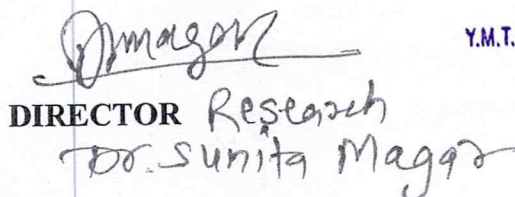 Y.M.T.
DIRECTOR Research
Dr. Sunita Magar